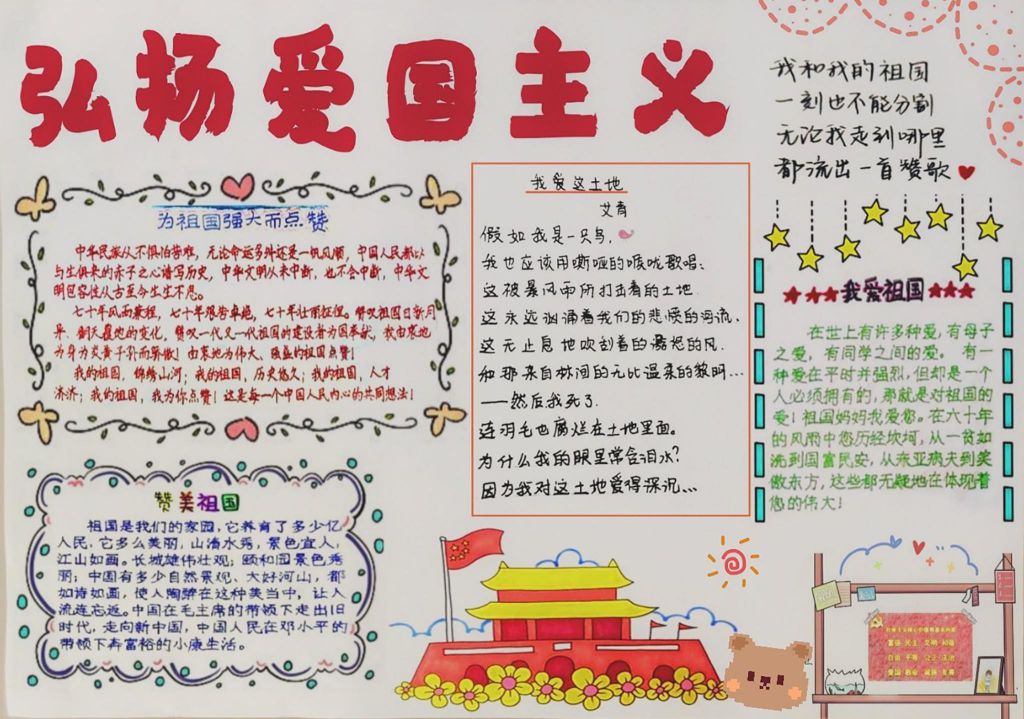 弘扬爱国主义
为祖国强大而点赞
中华民族从不惧怕苦难，无论命运多舛还是一帆风顺，中国人民都以
与生俱来的赤子之心谱写历史，中华文明从未中断，也不会中断，中华文
明包容性从古至今生生不息。
七十年风雨兼程，七十年艰苦卓绝，七十年壮丽征程。赞叹祖国日新月
异、翻天覆地的变化，赞叹一代又一代祖国的建设者为国奉献，我由衷地
为身为炎黄子孙而骄傲！由衷地为伟大、强盛的祖国点赞！
我的祖国，锦绣山河；我的祖国，历史悠久；我的祖国，人才
济济；我的祖国，我为你点赞！这是每一个中国人民内心的共同想法！
赞美祖国
祖国是我们的家园，它养育了多少亿
人民，它多么美丽，山清水秀，景色宜人，
江山如画。长城雄伟壮观；颐和园景色秀
丽；中国有多少自然景观、大好河山，都
如诗如画，使人陶醉在这种美当中，让人
流连忘返。中国在毛主席的带领下走出旧
时代，走向新中国，中国人民在邓小平的
带领下奔富裕的小康生活。
我爱这土地
艾青
假如我是一只鸟，
我也应该用嘶哑的喉咙歌唱：
这被暴风雨所打击着的土地
这永远汹涌着我们的悲愤的河流，
这无止息地吹刮着的激怒的风，
和那来自林间的无比温柔的黎明...
——然后我死了，
连羽毛也腐烂在土地里面。
为什么我的眼里常含泪水？
因为我对这土地爱得深沉...
我和我的祖国
一刻也不能分割
无论我走到哪里
都流出一首赞歌
我爱祖国
在世上有许多种爱，有母子
之爱，有同学之间的爱。有一
种爱在平时并强烈，但却是一个
人必须拥有的，那就是对祖国的
爱！祖国妈妈我爱您。在六十年
的风雨中您历经坎坷，从一贫如
洗到国富民安，从东亚病夫到笑
傲东方，这些都无疑地在体现着
您的伟大！
富强 民主 文明 和谐
自由 平等 公正 法治
爱国 敬业 诚信 友善